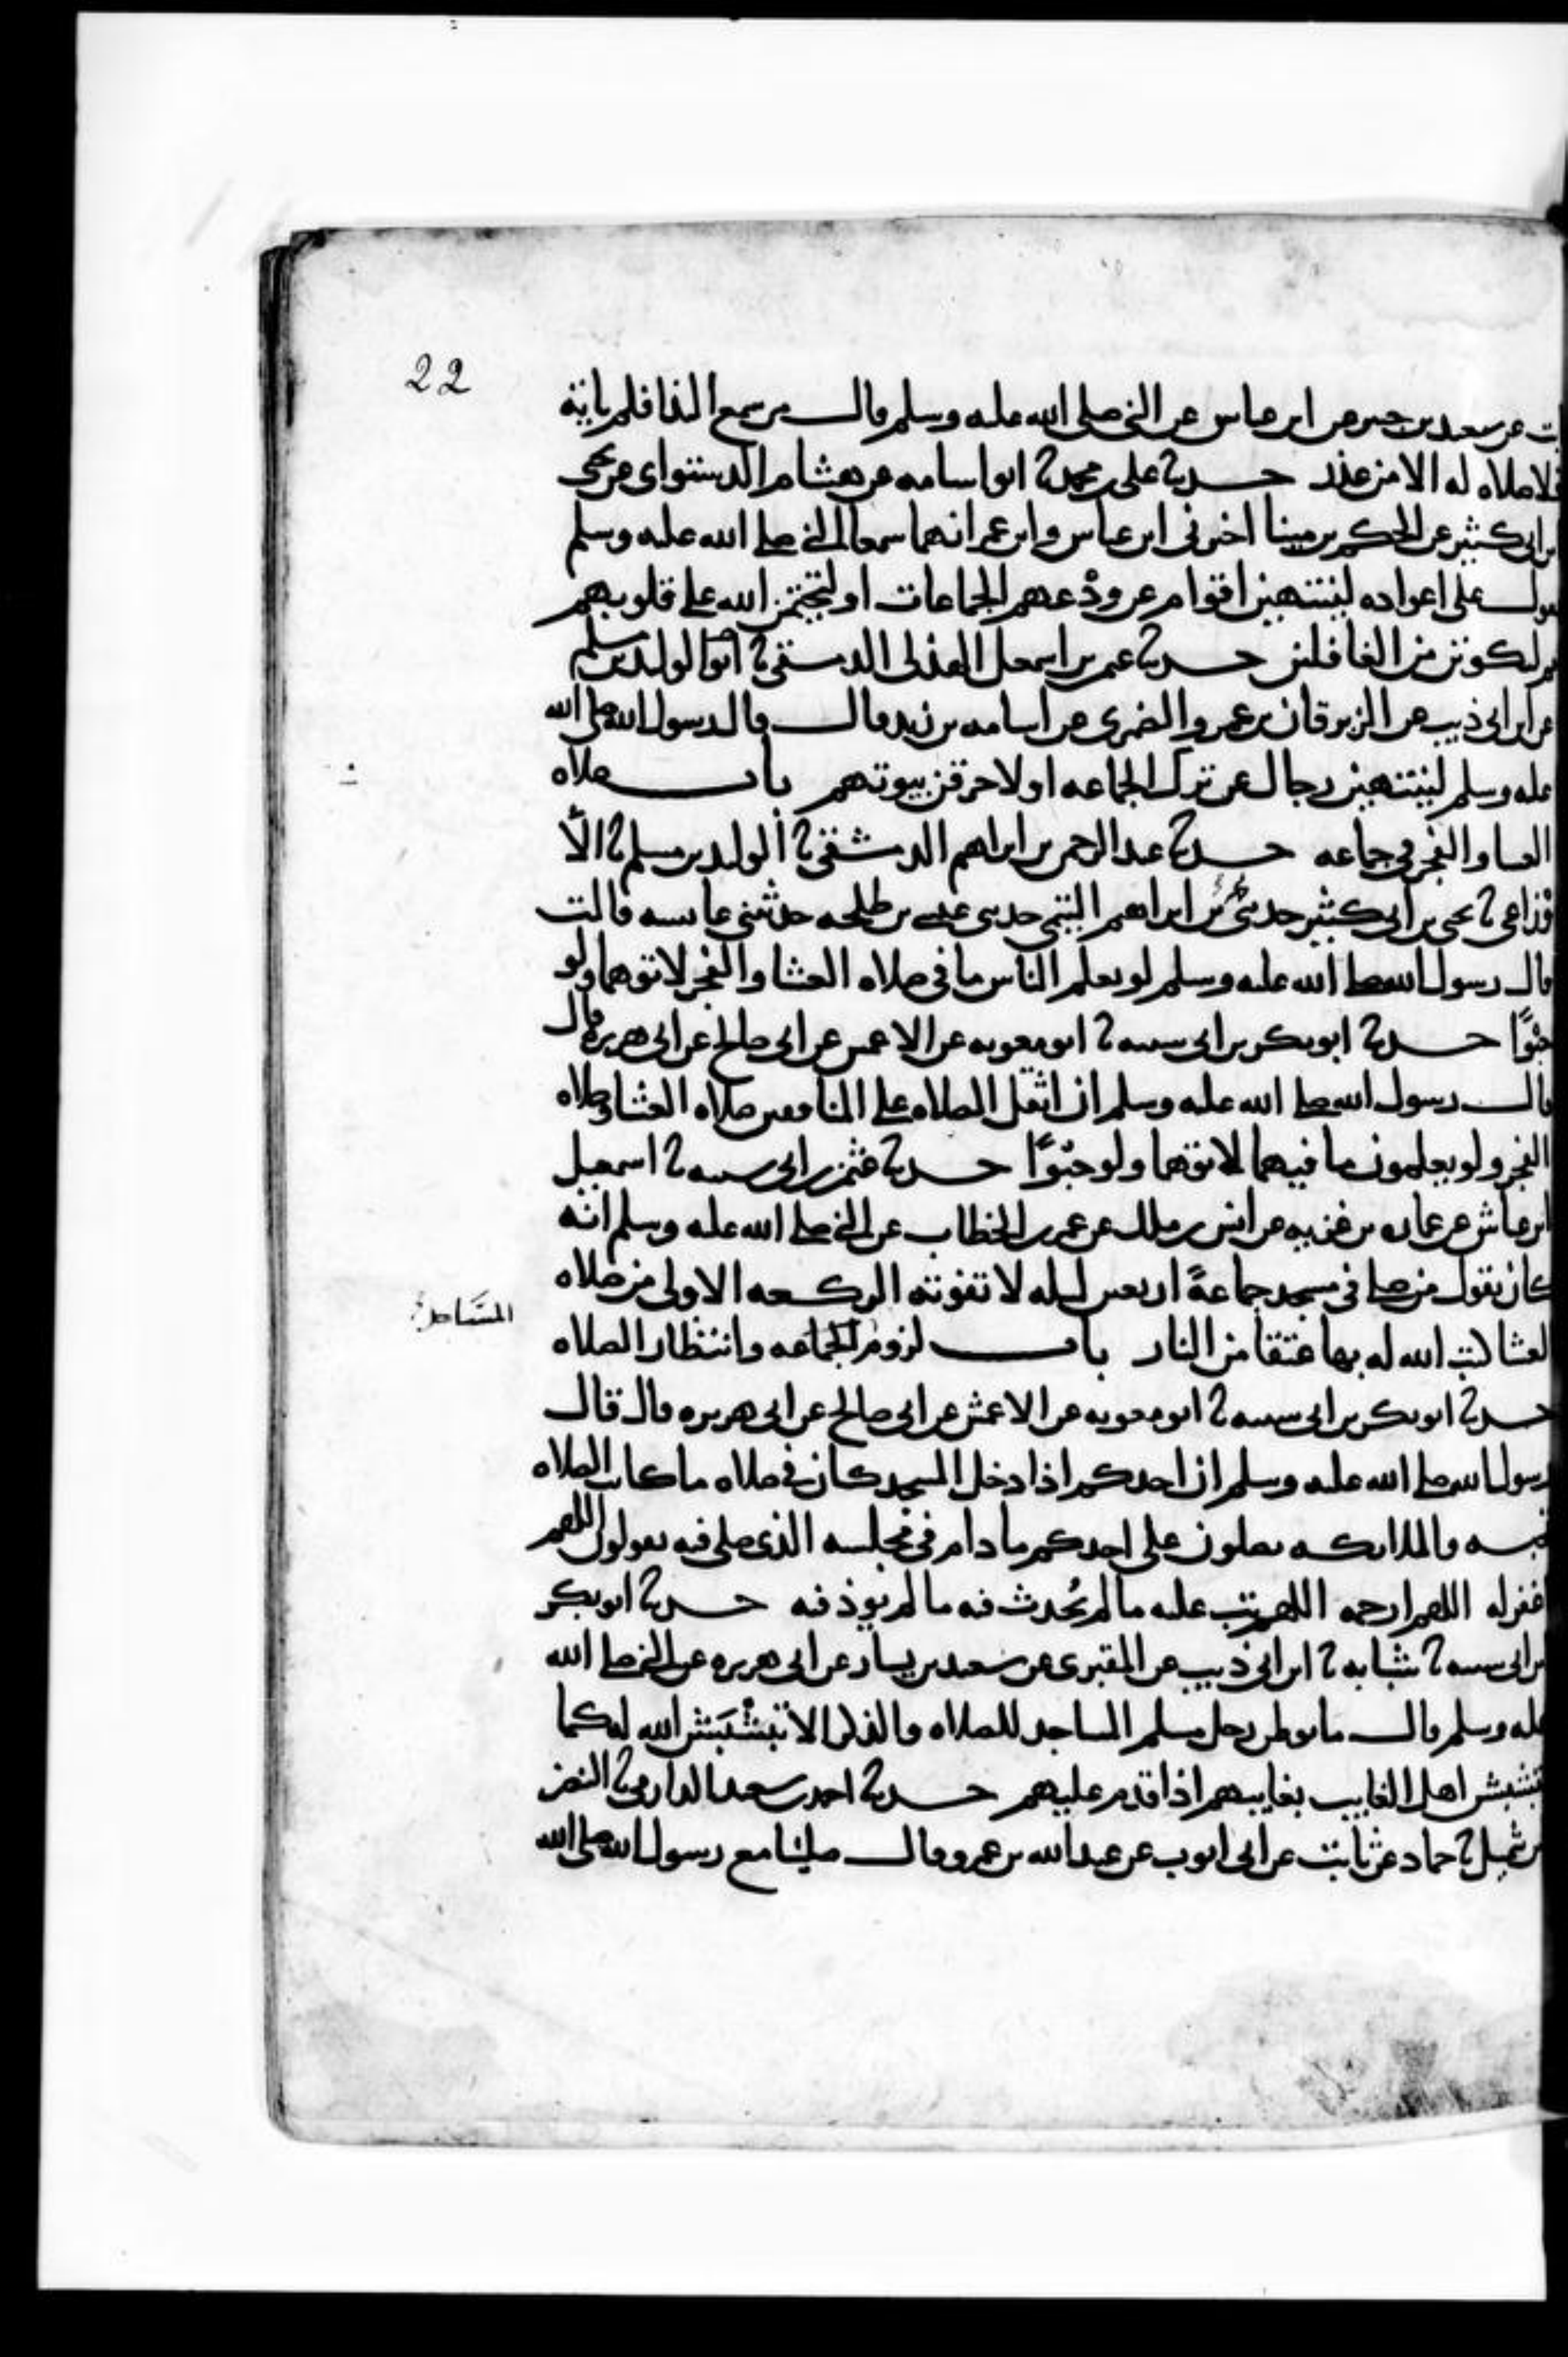 22
ت عن سعيد بن جبير عن ابن عباس عن النبي صلى الله عليه وسلم قال من سمع الندا فلم ياته
فلا صلاه له الا من عذر حدثنا علي بن محمد نا ابو اسامه عن هشام الدستواى عن يحيى
بن ابي كثير عن الحكم بن مينا اخبرني ابن عباس وابن عمر انهما سمعا النبي صلى الله عليه وسلم
يقول على اعواده لينتهين اقوام عن ودعهم الجماعات او ليختمن الله على قلوبهم
ثم ليكونن من الغافلين حدثنا عثمن بن اسمعيل الهذلي الدمشقي نا الوليد بن مسلم
عن ابن ابي ذيب عن الزبرقان بن عمرو الضمري عن اسامه بن زيد قال قال رسول الله صلى الله
عليه وسلم لينتهين رجال عن ترك الجماعه او لاحرقن بيوتهم باب صلاه
العشا والفجر في جماعه حدثنا عبد الرحمن بن ابراهيم الدمشقي نا الوليد بن مسلم نا الا
وزاعي نا يحيى بن ابي كثير حدثني محمد بن ابراهيم التيمي حدثني عيسى بن طلحه حدثتني عايشه قالت
قال رسول الله صلى الله عليه وسلم لو يعلم الناس ما في صلاه العشا والفجر لاتوهما ولو
حبوًا حدثنا ابو بكر بن ابي شيبه نا ابو معويه عن الاعمش عن ابي صالح عن ابي هريره قال
قال رسول الله صلى الله عليه وسلم ان اثقل الصلاه على المنافقين صلاه العشا وصلاه
الفجر ولو يعلمون ما فيهما لاتوهما ولو حبوًا حدثنا عثمن بن ابي شيبه نا اسمعيل
ابن عياش عن عماره بن غزيه عن انس بن ملك عن عمر بن الخطاب عن النبي صلى الله عليه وسلم انه
كان يقول من صلى في مسجد جماعةً اربعين ليله لا تفوته الركعه الاولى من صلاه
العشا كتب الله له بها عتقا من النار باب لزوم الجماعه وانتظار الصلاه
المسَاجد
حدثنا ابو بكر بن ابي شيبه نا ابو معويه عن الاعمش عن ابي صالح عن ابي هريره قال قال
رسول الله صلى الله عليه وسلم ان احدكم اذا دخل المسجد كان في صلاه ما كانت الصلاه
تحبسه والملايكه يصلون على احدكم ما دام في مجلسه الذي صلى فيه يقولون اللهم
اغفر له اللهم ارحمه اللهم تب عليه ما لم يُحدث فيه ما لم يوذ فيه حدثنا ابو بكر
بن ابي شيبه نا شبابه نا ابن ابي ذيب عن المقبري عن سعيد بن يسار عن ابي هريره عن النبي صلى الله
عليه وسلم قال ما توطن رجل مسلم المساجد للصلاه والذكر الا تبشبش الله له كما
تبشبش اهل الغايب بغايبهم اذا قدم عليهم حدثنا احمد بن سعيد الدارمي نا النضر
بن شميل نا حماد عن ثابت عن ابي ايوب عن عبد الله بن عمرو قال صلينا مع رسول الله صلى الله